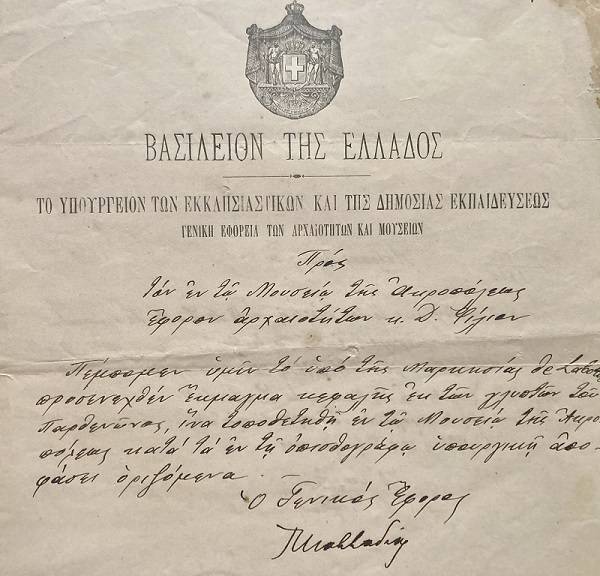 ΒΑΣΙΛΕΙΟΝ ΤΗΣ ΕΛΛΑΔΟΣ
ΤΟ ΥΠΟΥΡΓΕΙΟΝ ΤΩΝ ΕΚΚΛΗΣΙΑΣΤΙΚΩΝ ΚΑΙ ΤΗΣ ΔΗΜΟΣΙΑΣ ΕΚΠΑΙΔΕΥΣΕΩΣ
ΓΕΝΙΚΗ ΕΦΟΡΕΙΑ ΤΩΝ ΑΡΧΑΙΟΤΗΤΩΝ ΚΑΙ ΜΟΥΣΕΙΩΝ
Πρὸς
τὸν ἐν τῷ Μουσείῳ τῆς Ἀκροπόλεως
Ἔφορον ἀρχαιοτήτων κ. Δ. Φίλιον
Πέμπομεν ὑμῖν τὸ ὑπὸ τῆς Μαρκησίας δὲ
προσενεχθὲν ἔκμαγμα κεφαλῆς ἐκ τῶν γλυπτῶν τοῦ
Παρθενῶνος, ἵνα τοποθετηθῇ ἐν τῷ Μουσείῳ τῆς Ἀκρο
πόλεως κατὰ τὰ ἐν τῇ ὀπισθογράφῳ ὑπουργικῇ ἀπο-
φάσει ὁριζόμενα. —
Ὁ Γενικὸς Ἔφορος
Π Καββαδίας